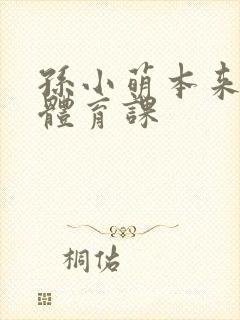 孫小萌本来
體育課
桐佑